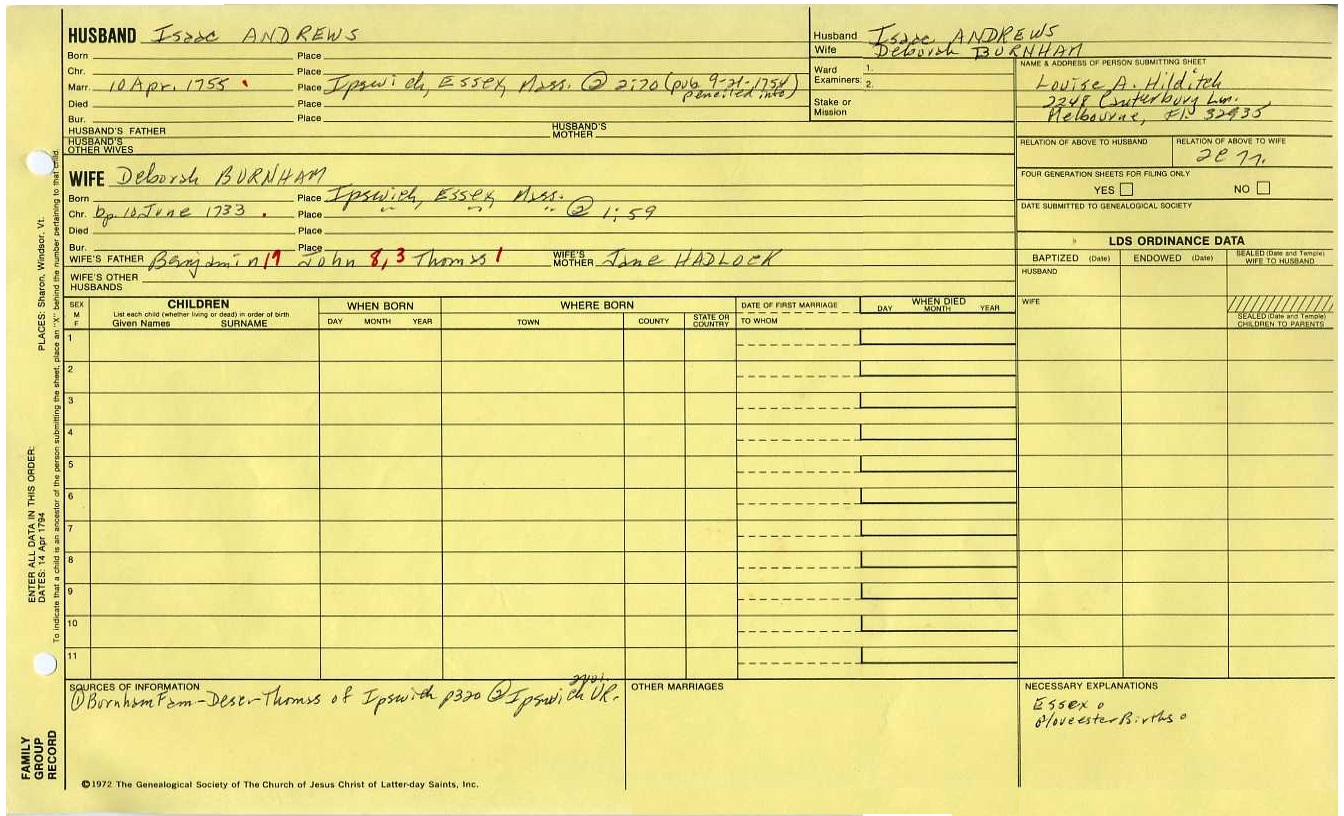 HUSBAND Isaac ANDREWS
Born Place
Chr. Place
Marr. 10 Apr. 1755 Place Ipswich, Essex, Mass. @ 2:20 (pub 9-21-1754
penciled into)
Died Place
Bur. Place
HUSBAND'S FATHER HUSBAND'S MOTHER
HUSBAND'S OTHER WIVES
Husband Isaac ANDREWS
Wife Deborah BURNHAM
Ward 1.
Examiners: 2.
Stake or Mission
NAME & ADDRESS OF PERSON SUBMITTING SHEET
Louise A. Hilditch
2248 Canterbury Ln.
Melbourne, Fl. 32935
RELATION OF ABOVE TO HUSBAND RELATION OF ABOVE TO WIFE
FOUR GENERATION SHEETS FOR FILING ONLY
YES NO
DATE SUBMITTED TO GENEALOGICAL SOCIETY
WIFE Deborah BURNHAM
Born Place Ipswich, Essex, Mass.
Chr. bp. 10 June 1733 Place " " " @ 1:59
Died Place
Bur. Place
WIFE'S FATHER Benjamin 19 John 8,3 Thomas 1 WIFE'S MOTHER Jane HADLOCK
WIFE'S OTHER HUSBANDS
LDS ORDINANCE DATA
BAPTIZED (Date) ENDOWED (Date) SEALED (Date and Temple) WIFE TO HUSBAND
HUSBAND
WIFE
SEALED (Date and Temple) CHILDREN TO PARENTS
SEX M F
CHILDREN
List each child (whether living or dead) in order of birth
Given Names SURNAME
WHEN BORN
DAY MONTH YEAR
WHERE BORN
TOWN COUNTY STATE OR COUNTRY
DATE OF FIRST MARRIAGE
TO WHOM
WHEN DIED
DAY MONTH YEAR
1
2
3
4
5
6
7
8
9
10
11
SOURCES OF INFORMATION
① Burnham Fam-Desc-Thomas of Ipswich p320 ② Ipswich VR.
OTHER MARRIAGES
NECESSARY EXPLANATIONS
Essex o
Gloucester Births o
©1972 The Genealogical Society of The Church of Jesus Christ of Latter-day Saints, Inc.
FAMILY GROUP RECORD
ENTER ALL DATA IN THIS ORDER:
DATES: 14 Apr 1794 PLACES: Sharon, Windsor, Vt.
To indicate that a child is an ancestor of the person submitting the sheet, place an "X" behind the number pertaining to that child.